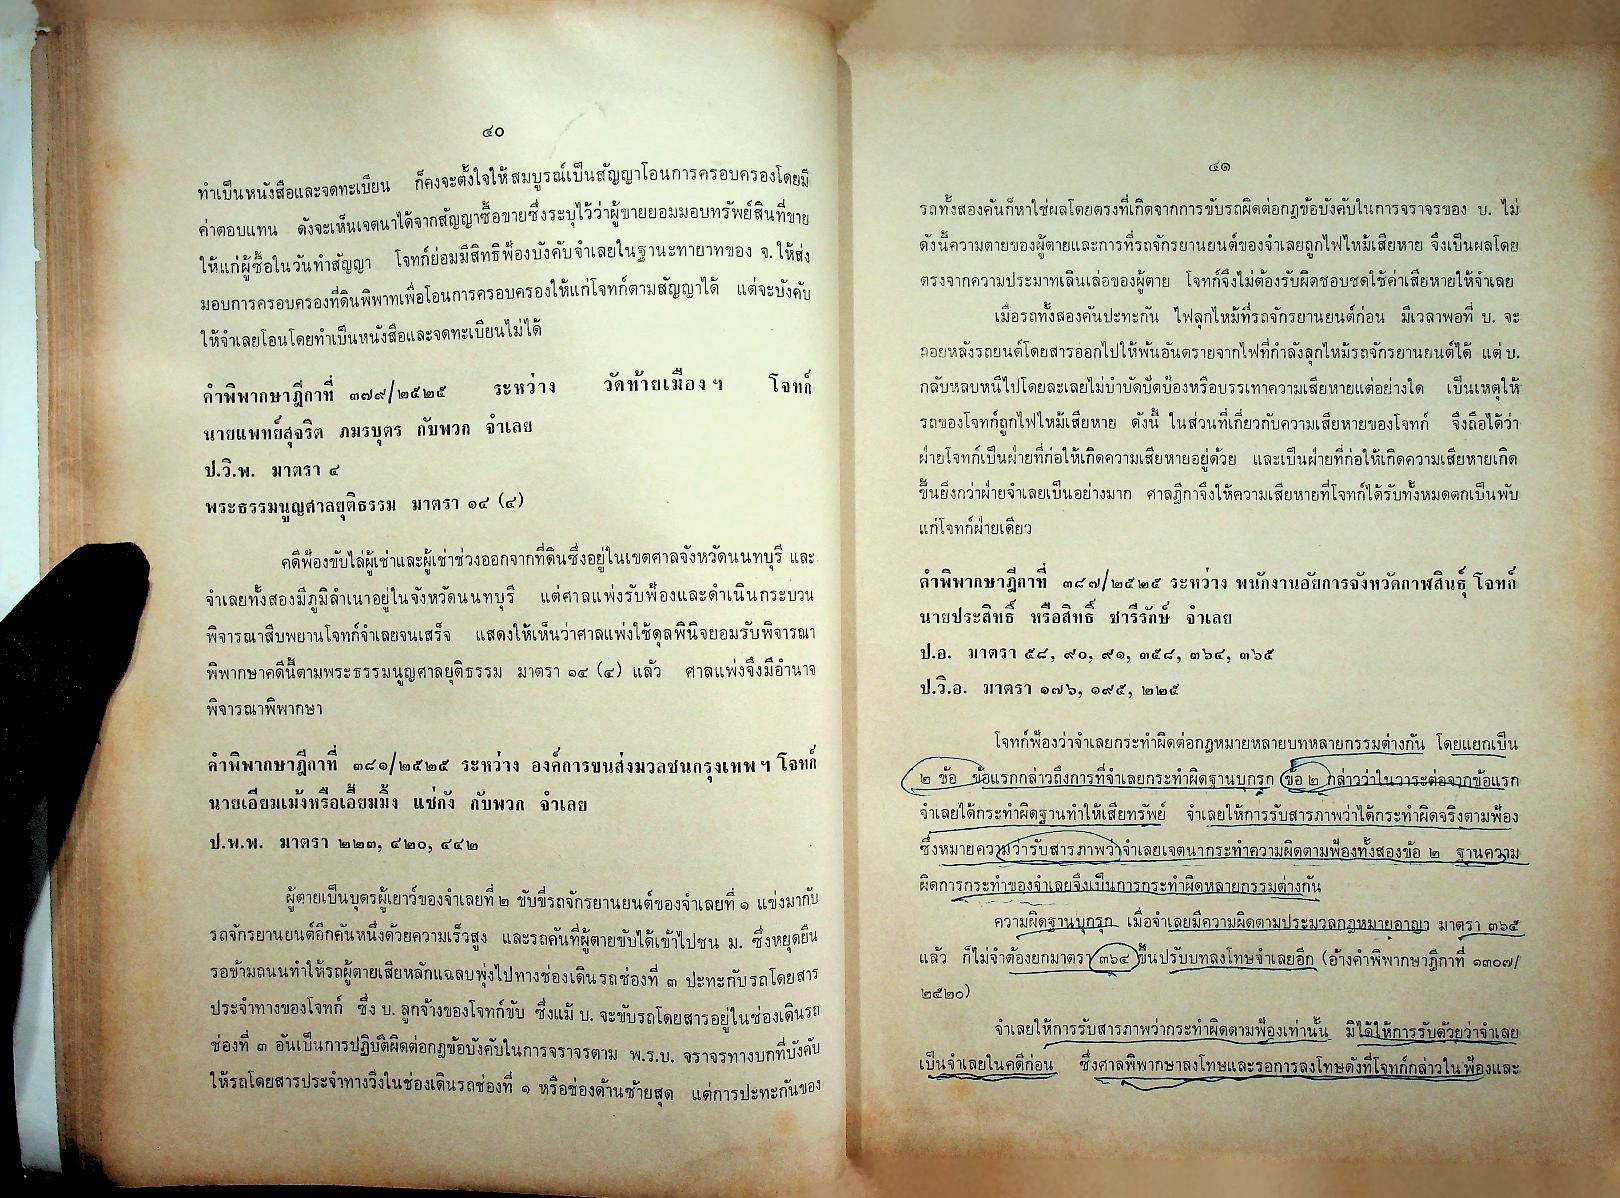 ๔๐
ทำเป็นหนังสือและจดทะเบียน ก็คงจะตั้งใจให้สมบูรณ์เป็นสัญญาโอนการครอบครองโดยมี
ค่าตอบแทน ดังจะเห็นเจตนาได้จากสัญญาซื้อขายซึ่งระบุไว้ว่าผู้ขายยอมมอบทรัพย์สินที่ขาย
ให้แก่ผู้ซื้อในวันทำสัญญา โจทก์ย่อมมีสิทธิฟ้องบังคับจำเลยในฐานะทายาทของ จ. ให้ส่ง
มอบการครอบครองที่ดินพิพาทเพื่อโอนการครอบครองให้แก่โจทก์ตามสัญญาได้ แต่จะบังคับ
ให้จำเลยโอนโดยทำเป็นหนังสือและจดทะเบียนไม่ได้
คำพิพากษาฎีกาที่ ๓๗๙/๒๕๒๕ ระหว่าง วัดท้ายเมือง ฯ โจทก์
นายแพทย์สุจริต ภมรบุตร กับพวก จำเลย
ป.วิ.พ. มาตรา ๔
พระธรรมนูญศาลยุติธรรม มาตรา ๑๔ (๔)
คดีฟ้องขับไล่ผู้เช่าและผู้เช่าช่วงออกจากที่ดินซึ่งอยู่ในเขตศาลจังหวัดนนทบุรี และ
จำเลยทั้งสองมีภูมิลำเนาอยู่ในจังหวัดนนทบุรี แต่ศาลแพ่งรับฟ้องและดำเนินกระบวน
พิจารณาสืบพยานโจทก์จำเลยจนเสร็จ แสดงให้เห็นว่าศาลแพ่งใช้ดุลพินิจยอมรับพิจารณา
พิพากษาคดีนี้ตามพระธรรมนูญศาลยุติธรรม มาตรา ๑๔ (๔) แล้ว ศาลแพ่งจึงมีอำนาจ
พิจารณาพิพากษา
คำพิพากษาฎีกาที่ ๓๘๑/๒๕๒๕ ระหว่าง องค์การขนส่งมวลชนกรุงเทพ ฯ โจทก์
นายเอียมเม้งหรือเอี้ยมมิ้ง แซ่กัง กับพวก จำเลย
ป.พ.พ. มาตรา ๒๒๓, ๔๒๐, ๔๔๒
ผู้ตายเป็นบุตรผู้เยาว์ของจำเลยที่ ๒ ขับขี่รถจักรยานยนต์ของจำเลยที่ ๑ แข่งมากับ
รถจักรยานยนต์อีกคันหนึ่งด้วยความเร็วสูง และรถคันที่ผู้ตายขับได้เข้าไปชน ม. ซึ่งหยุดยืน
รอข้ามถนนทำให้รถผู้ตายเสียหลักแฉลบพุ่งไปทางช่องเดินรถช่องที่ ๓ ปะทะกับรถโดยสาร
ประจำทางของโจทก์ ซึ่ง บ. ลูกจ้างของโจทก์ขับ ซึ่งแม้ บ. จะขับรถโดยสารอยู่ในช่องเดินรถ
ช่องที่ ๓ อันเป็นการปฏิบัติผิดต่อกฎข้อบังคับในการจราจรตาม พ.ร.บ. จราจรทางบกที่บังคับ
ให้รถโดยสารประจำทางวิ่งในช่องเดินรถช่องที่ ๑ หรือช่องด้านซ้ายสุด แต่การปะทะกันของ
๔๑
รถทั้งสองคันก็หาใช่ผลโดยตรงที่เกิดจากการขับรถผิดต่อกฎข้อบังคับในการจราจรของ บ. ไม่
ดังนี้ความตายของผู้ตายและการที่รถจักรยานยนต์ของจำเลยถูกไฟไหม้เสียหาย จึงเป็นผลโดย
ตรงจากความประมาทเลินเล่อของผู้ตาย โจทก์จึงไม่ต้องรับผิดชอบชดใช้ค่าเสียหายให้จำเลย
เมื่อรถทั้งสองคันปะทะกัน ไฟลุกไหม้ที่รถจักรยานยนต์ก่อน มีเวลาพอที่ บ. จะ
ถอยหลังรถยนต์โดยสารออกไปให้พ้นอันตรายจากไฟที่กำลังลุกไหม้รถจักรยานยนต์ได้ แต่ บ.
กลับหลบหนีไปโดยละเลยไม่บำบัดปัดป้องหรือบรรเทาความเสียหายแต่อย่างใด เป็นเหตุให้
รถของโจทก์ถูกไฟไหม้เสียหาย ดังนี้ ในส่วนที่เกี่ยวกับความเสียหายของโจทก์ จึงถือได้ว่า
ฝ่ายโจทก์เป็นฝ่ายที่ก่อให้เกิดความเสียหายอยู่ด้วย และเป็นฝ่ายที่ก่อให้เกิดความเสียหายเกิด
ขึ้นยิ่งกว่าฝ่ายจำเลยเป็นอย่างมาก ศาลฎีกาจึงให้ความเสียหายที่โจทก์ได้รับทั้งหมดตกเป็นพับ
แก่โจทก์ฝ่ายเดียว
คำพิพากษาฎีกาที่ ๓๘๗/๒๕๒๕ ระหว่าง พนักงานอัยการจังหวัดกาฬสินธุ์ โจทก์
นายประสิทธิ์ หรือสิทธิ์ ชารีรักษ์ จำเลย
ป.อ. มาตรา ๕๘, ๙๐, ๙๑, ๓๕๘, ๓๖๔, ๓๖๕
ป.วิ.อ. มาตรา ๑๗๖, ๑๙๕, ๒๒๕
โจทก์ฟ้องว่าจำเลยกระทำผิดต่อกฎหมายหลายบทหลายกรรมต่างกัน โดยแยกเป็น
๒ ข้อ ข้อแรกกล่าวถึงการที่จำเลยกระทำผิดฐานบุกรุก ข้อ ๒ กล่าวว่าในวาระต่อจากข้อแรก
จำเลยได้กระทำผิดฐานทำให้เสียทรัพย์ จำเลยให้การรับสารภาพว่าได้กระทำผิดจริงตามฟ้อง
ซึ่งหมายความว่ารับสารภาพว่าจำเลยเจตนากระทำความผิดตามฟ้องทั้งสองข้อ ๒ ฐานความ
ผิดการกระทำของจำเลยจึงเป็นการกระทำผิดหลายกรรมต่างกัน
ความผิดฐานบุกรุก เมื่อจำเลยมีความผิดตามประมวลกฎหมายอาญา มาตรา ๓๖๕
แล้ว ก็ไม่จำต้องยกมาตรา ๓๖๔ ขึ้นปรับบทลงโทษจำเลยอีก (อ้างคำพิพากษาฎีกาที่ ๑๓๐๗/
๒๕๒๐)
จำเลยให้การรับสารภาพว่ากระทำผิดตามฟ้องเท่านั้น มิได้ให้การรับด้วยว่าจำเลย
เป็นจำเลยในคดีก่อน ซึ่งศาลพิพากษาลงโทษและรอการลงโทษดังที่โจทก์กล่าวในฟ้องและ